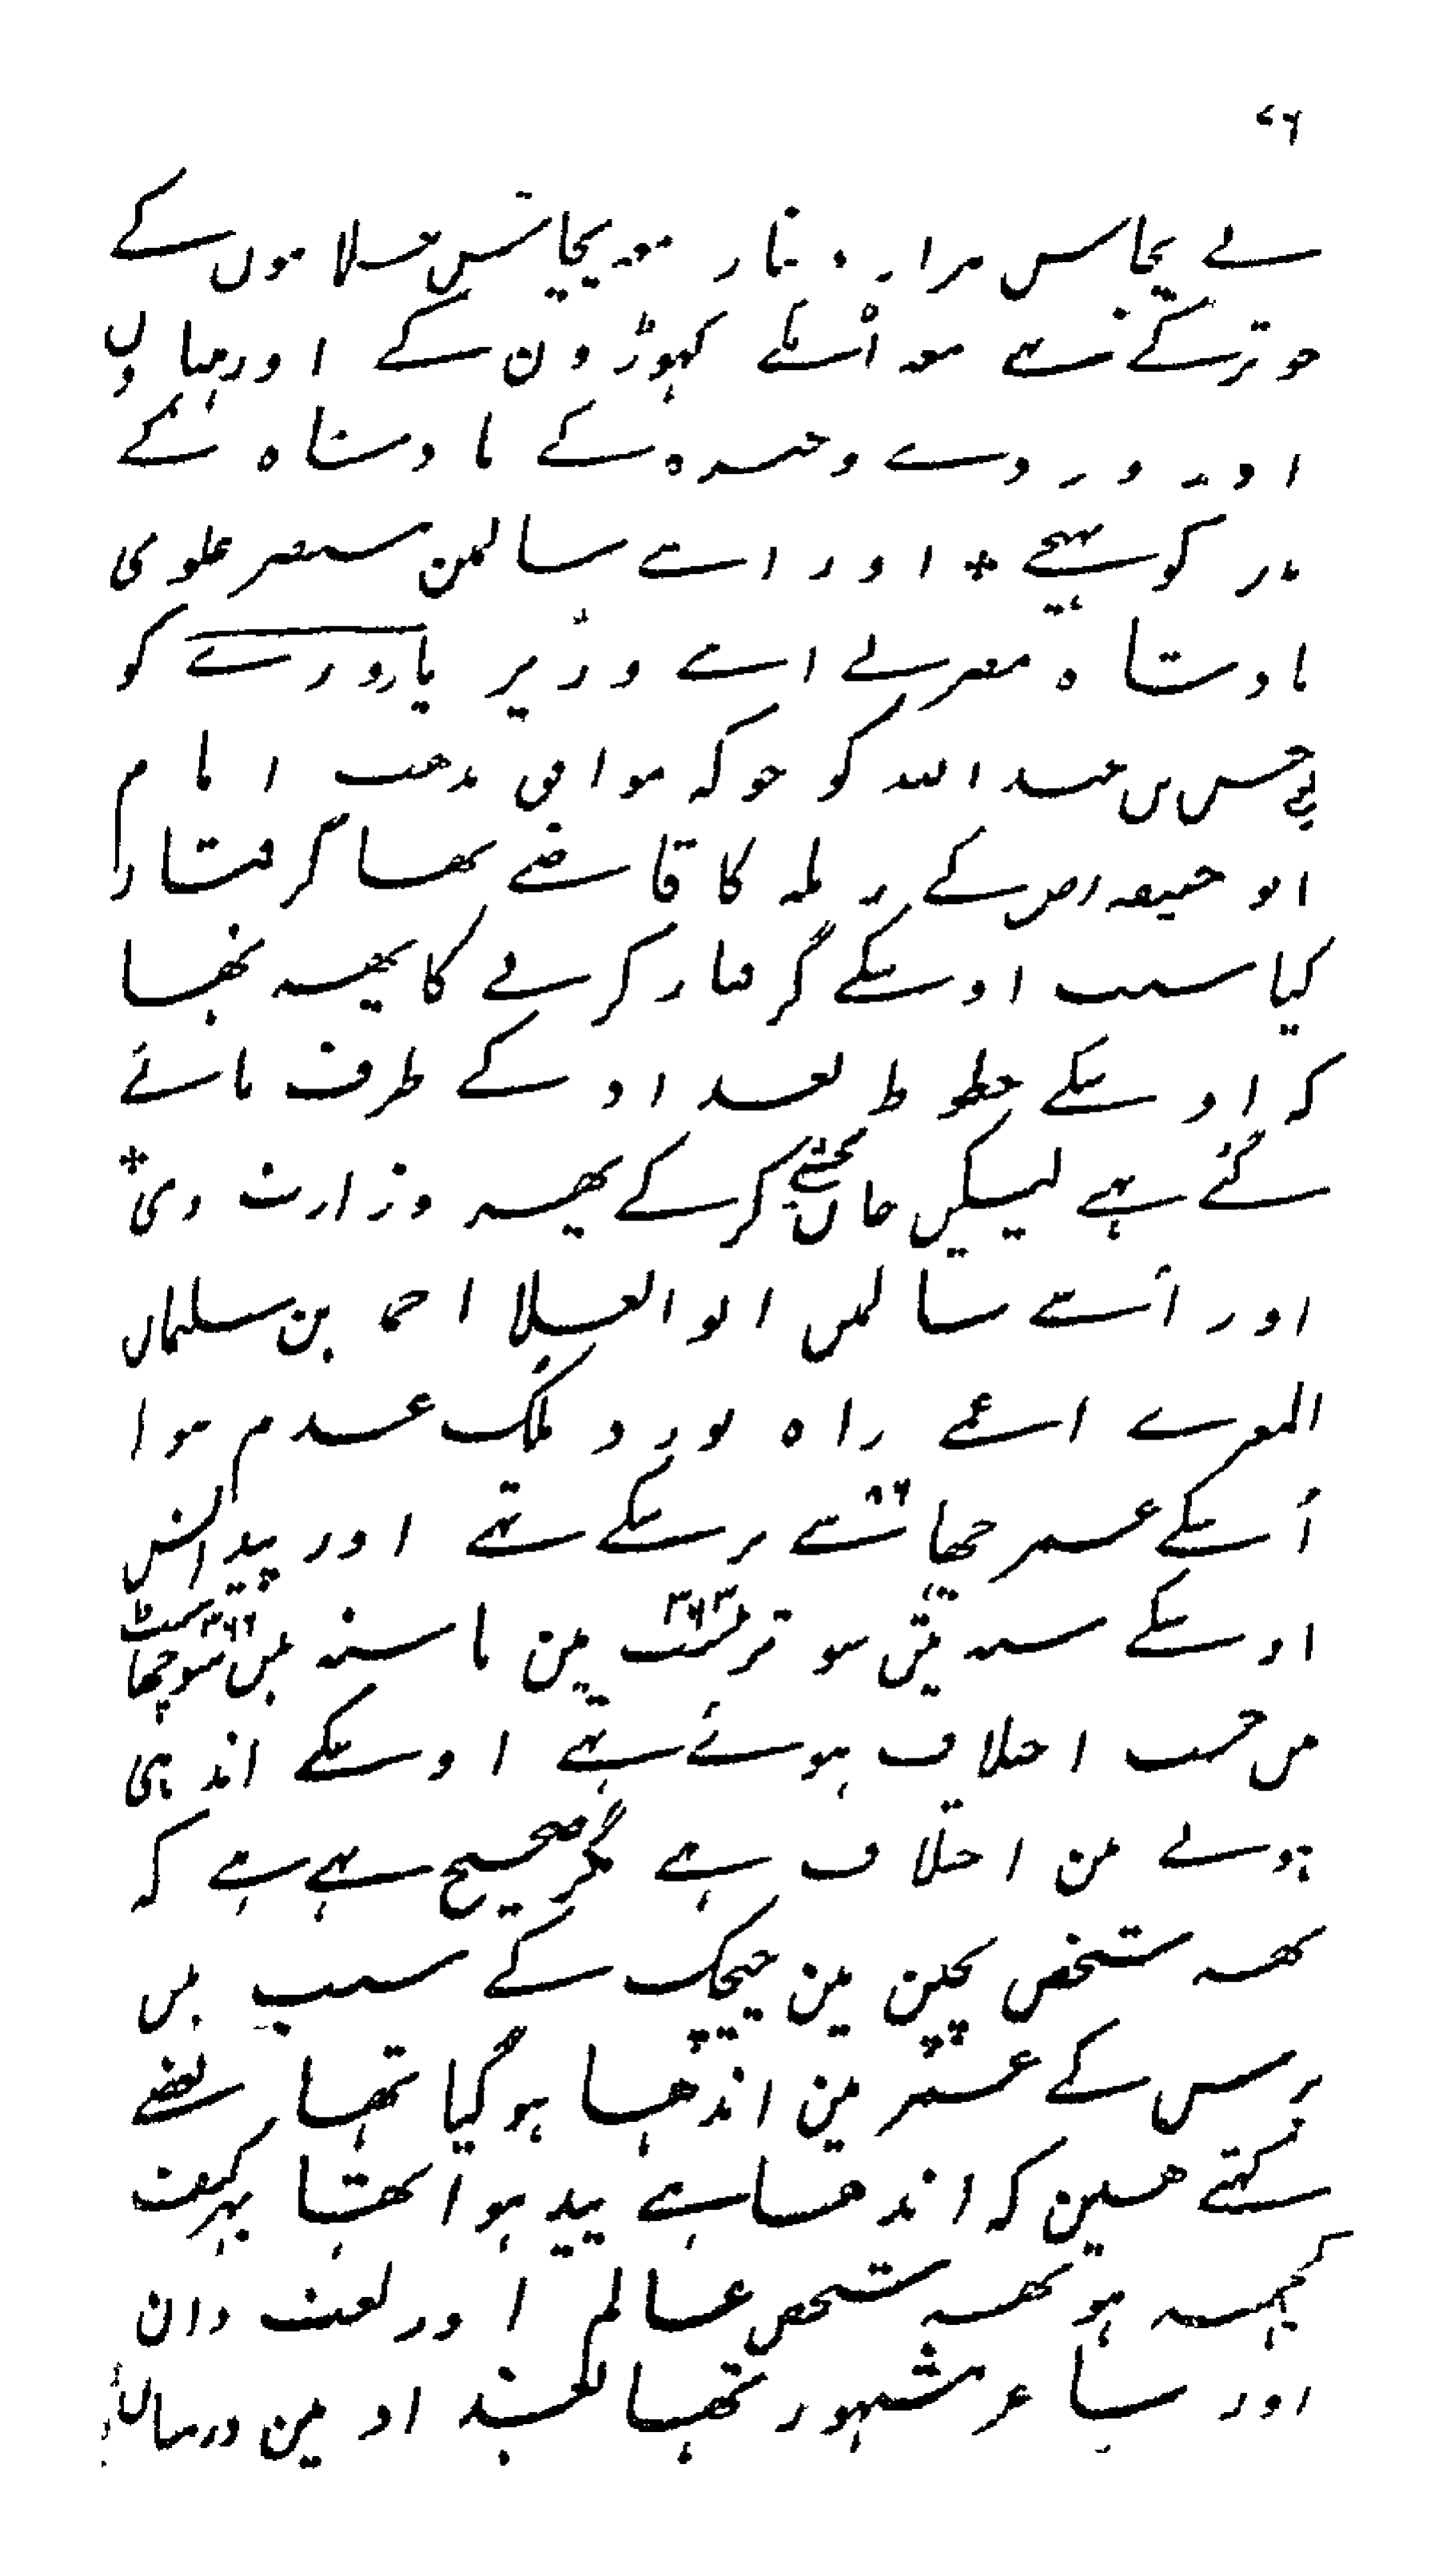 ٧٦
نے پچاس ہزار دینار معہ پچاس غلاموں کے
جو ترکے تہے معہ اُسکے گہوڑون کے اور ہتیاروں
اور وردے وغیرہ کے بادشاہ کے
نذر کو بہیجے * اور اسے سالمین مستنصر علوی
بادشاہ مصر نے اسے وزیر یازورے کو
یعنے حسن بن عبد اللہ کو جو کہ موافق مذھب امام
ابو حنیفہ رض کے رملہ کا قاضے تھا گرفتار
کیا سبب اوسکے گرفتار کرنے کا یھہ تھا
کہ اوسکے خطوط بغداد کے طرف پائے
گئے ہے لیکن جاں بخشے کرکے پھیہ وزارت دی *
اور اُسے سالمیں ابو العلا احمد بن سلیمان
المعرے اعمے راہ نورد ملک عدم ہوا
اُسکے عمر چھیاسے ٨٦ برسکے تہے اور پیدائش
اوسکے سنہ تین سو ترسٹ ٣٦٣ مین یا سنہ تین سو چھاسٹ ٣٦٦
میں حسب اختلاف ہوئے تہے اوسکے اندہی
ہونے مین اختلاف ہے مگر صحیح یہے ہے کہ
یھہ شخص بچپن مین چیچک کے سبب تین
برس کے عمر مین اندھا ہو گیا تھا بعضے
کہتے ھین کہ اندھا ہے پیدا ہوا تھا بہر کیف
کچھہ ہو یھہ شخص عالم اور لغت دان
اور شاعر مشہور تھا بغداد مین درمیاں